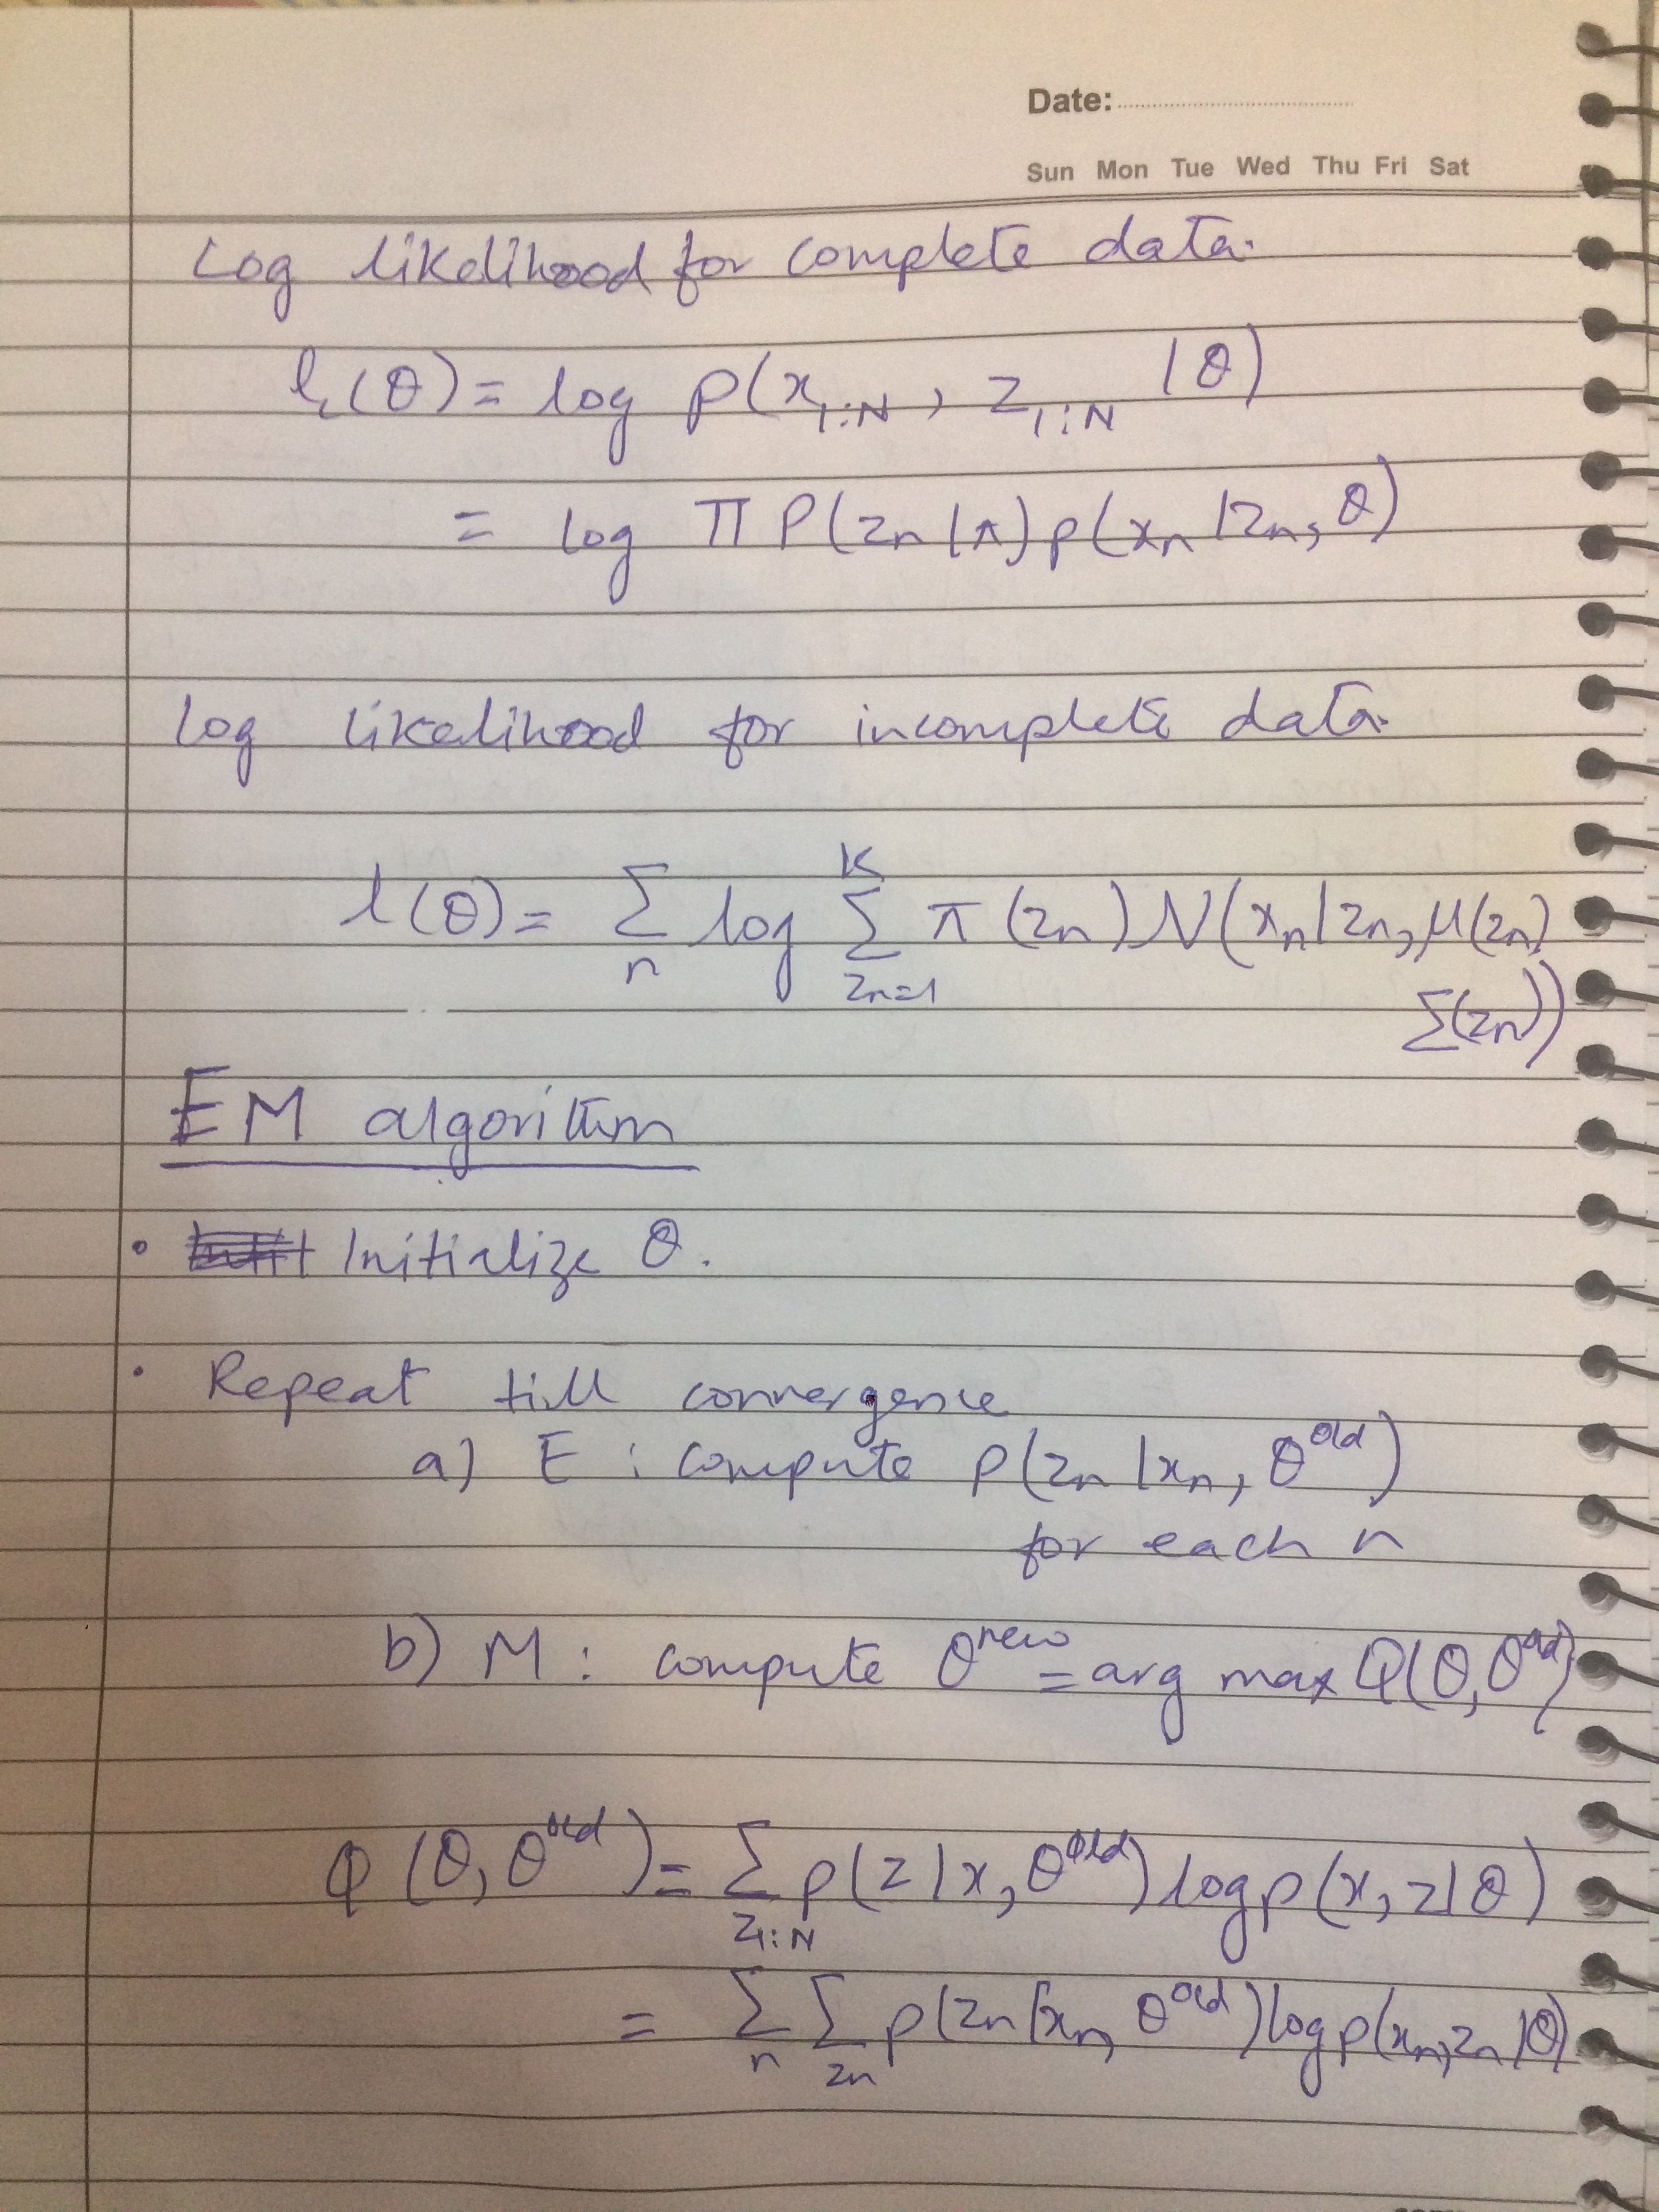 Date:
Sun Mon Tue Wed Thu Fri Sat
Log likelihood for complete data.
l_c(θ) = log p(x_{1:N}, z_{1:N} | θ)
= log Π P(z_n|π) p(x_n|z_n, θ)
log likelihood for incomplete data.
l(θ) = Σ_n log Σ_{z_n=1}^K π(z_n) N(x_n|z_n, μ(z_n),
Σ(z_n))
EM algorithm
• Initialize θ.
• Repeat till convergence
a) E : compute p(z_n|x_n, θ^old)
for each n
b) M : compute θ^new = arg max Q(θ, θ^old)
Q(θ, θ^old) = Σ_{z_{1:N}} p(z|x, θ^old) log p(x, z|θ)
= Σ_n Σ_{z_n} p(z_n|x_n, θ^old) log p(x_n, z_n|θ)